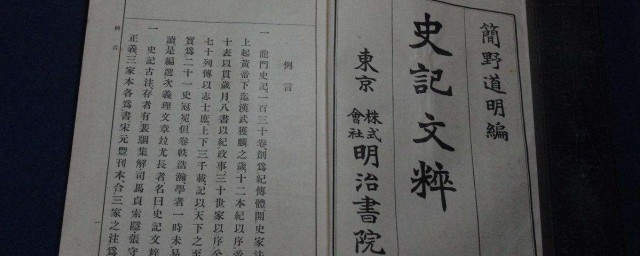 簡野道明編
史記文粹
東京 株式會社 明治書院
例言
一 龍門史記一百三十卷創爲紀傳體開史家法
上起黃帝下迄漢武獲麟之歲十二本紀以序帝
十表以貫歲月八書以紀政事三十世家以序公
七十列傳以志士庶上下三千載記以天下之至
實爲二十一史冠冕但卷帙浩瀚學者一時未易
讀是編選次義理文章竝尤長者名曰史記文粹
一 史記古注存者有裴駰集解司馬貞索隱張守
正義三家本各爲書宋元豐刊本合三家之注爲
例言
一